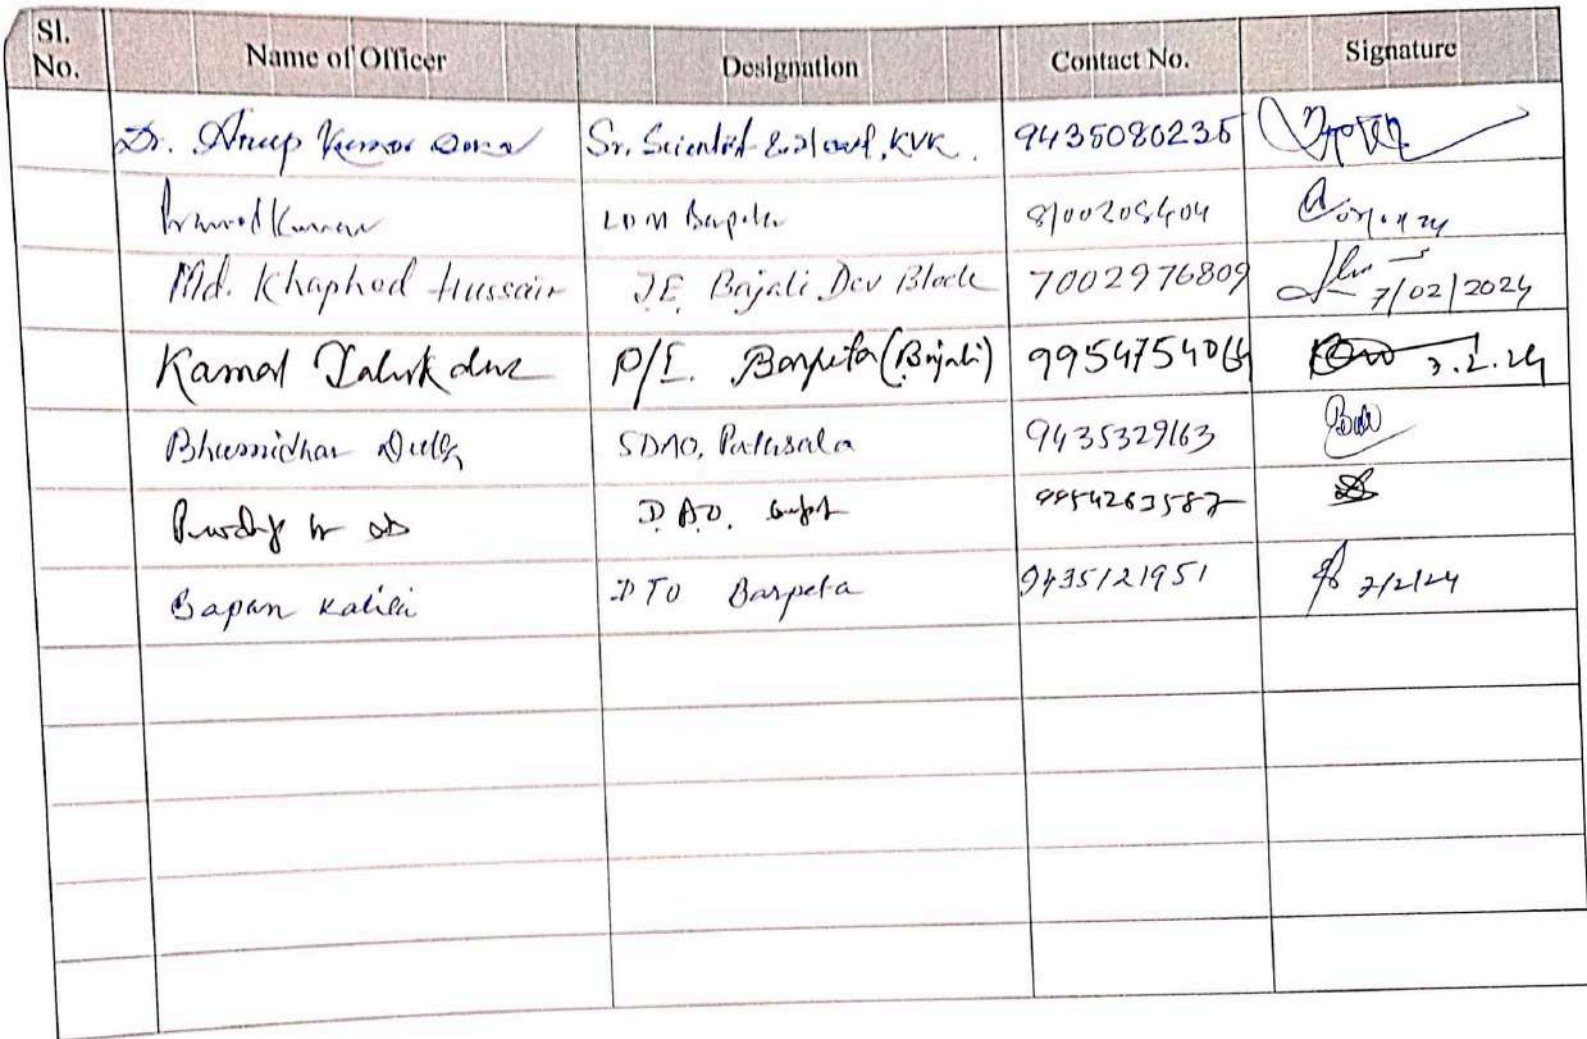 Sl. No. Name of Officer Designation Contact No. Signature
Dr. Anup Kumar Sr. Scientist & Head, KVK. 9435080235
Pramod Kumar LDM Barpeta 8100205404
Md. Khaphod Hussain JE Bajali Dev Block 7002976809 7/02/2024
Kamal Talukdar P/I. Barpeta (Bajali) 9954754064 7.2.24
Bhumidhar Dutta SDAO, Pathsala 9435329163
D.A.O. 9954263587
Bapan Kalita DTO Barpeta 9435121951 7/2/24